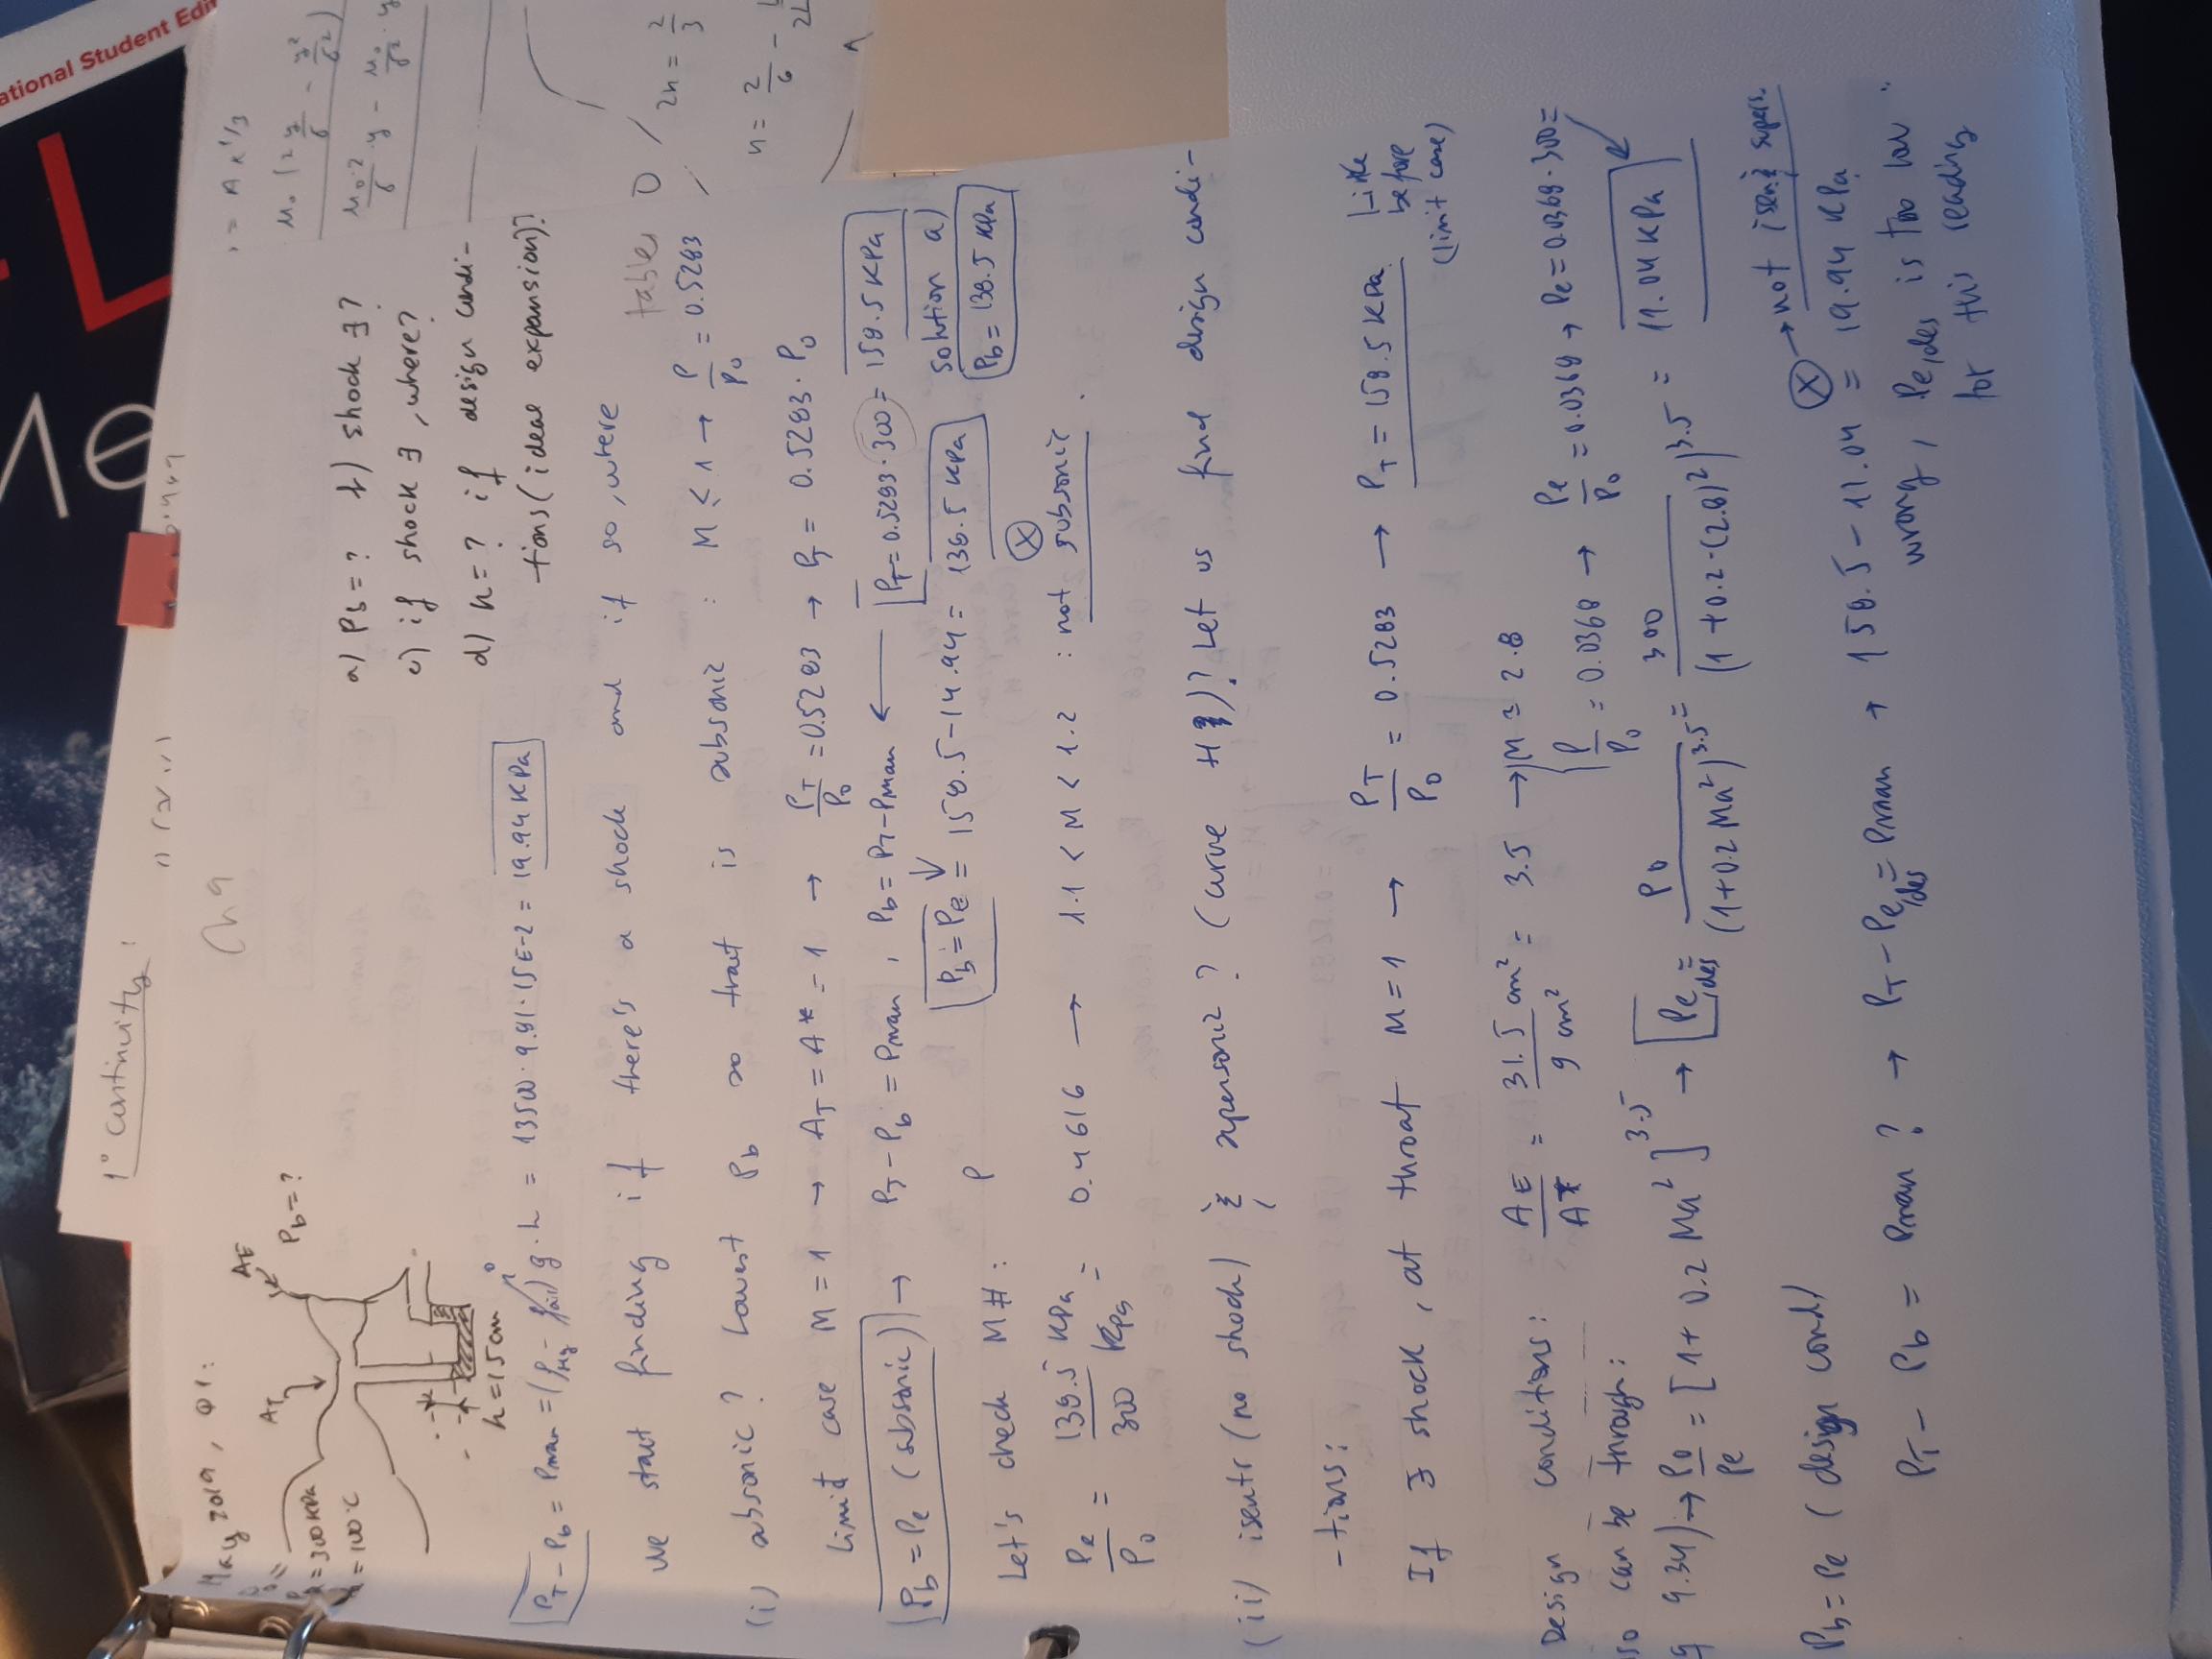 ational Student Edi
1° continuity:
May 2019, Q1:
Ch 9
AE
AT
Pb = ?
= 300 KPa
= 100°C
h = 15 cm
= A x^1/3
μ0 (2 y/δ - y²/δ²)
μ0·2/δ · y - μ0/δ² · y
a) Pb = ? b) shock ∃?
c) if shock ∃, where?
d) h = ? if design condi-
tions (ideal expansion)?
PT - Pb = Pman = (ρHg - ρair)⁰ g · h = 13500 · 9.81 · 15E-2 = 19.94 KPa
we start finding if there's a shock and if so, where
tables
2n = 2/3
(i) subsonic? Lowest Pb so that is subsonic : M ≤ 1 → P/P0 = 0.5283
n = 2/6 -
Limit case M = 1 → AT = A* = 1 → PT/P0 = 0.5283 → PT = 0.5283 · P0
Pb = Pe (subsonic) → PT - Pb = Pman, Pb = PT - Pman ← PT = 0.5283 · 300 = 158.5 KPa
Pb = Pe = 158.5 - 19.94 = 138.5 KPa
solution a)
Pb = 138.5 KPa
Let's check M#: P
Pe/P0 = 138.5 KPa/300 KPa = 0.4616 → 1.1 < M < 1.2 : not subsonic.
(ii) isentr (no shock) & supersonic? (curve H)? Let us find design condi-
-tions:
If ∃ shock, at throat M = 1 → PT/P0 = 0.5283 → PT = 158.5 KPa Like before (limit case)
Design conditions: AE/A* = 31.5 cm²/9 cm² = 3.5 → M ≅ 2.8
P/P0 = 0.0368 → Pe/P0 = 0.0368 → Pe = 0.0368 · 300 =
so can be through:
9.34) → P0/Pe = [1 + 0.2 Ma²]^3.5 → Pe,des = P0/(1+0.2 Ma²)^3.5 = 300/(1+0.2·(2.8)²)^3.5 = 11.04 KPa
Pb = Pe (design cond)
→ not isen & supers.
PT - Pb = Pman ? → PT - Pe,des = Pman → 158.5 - 11.04 = 19.94 KPa
wrong, Pe,des is too low
for this reading